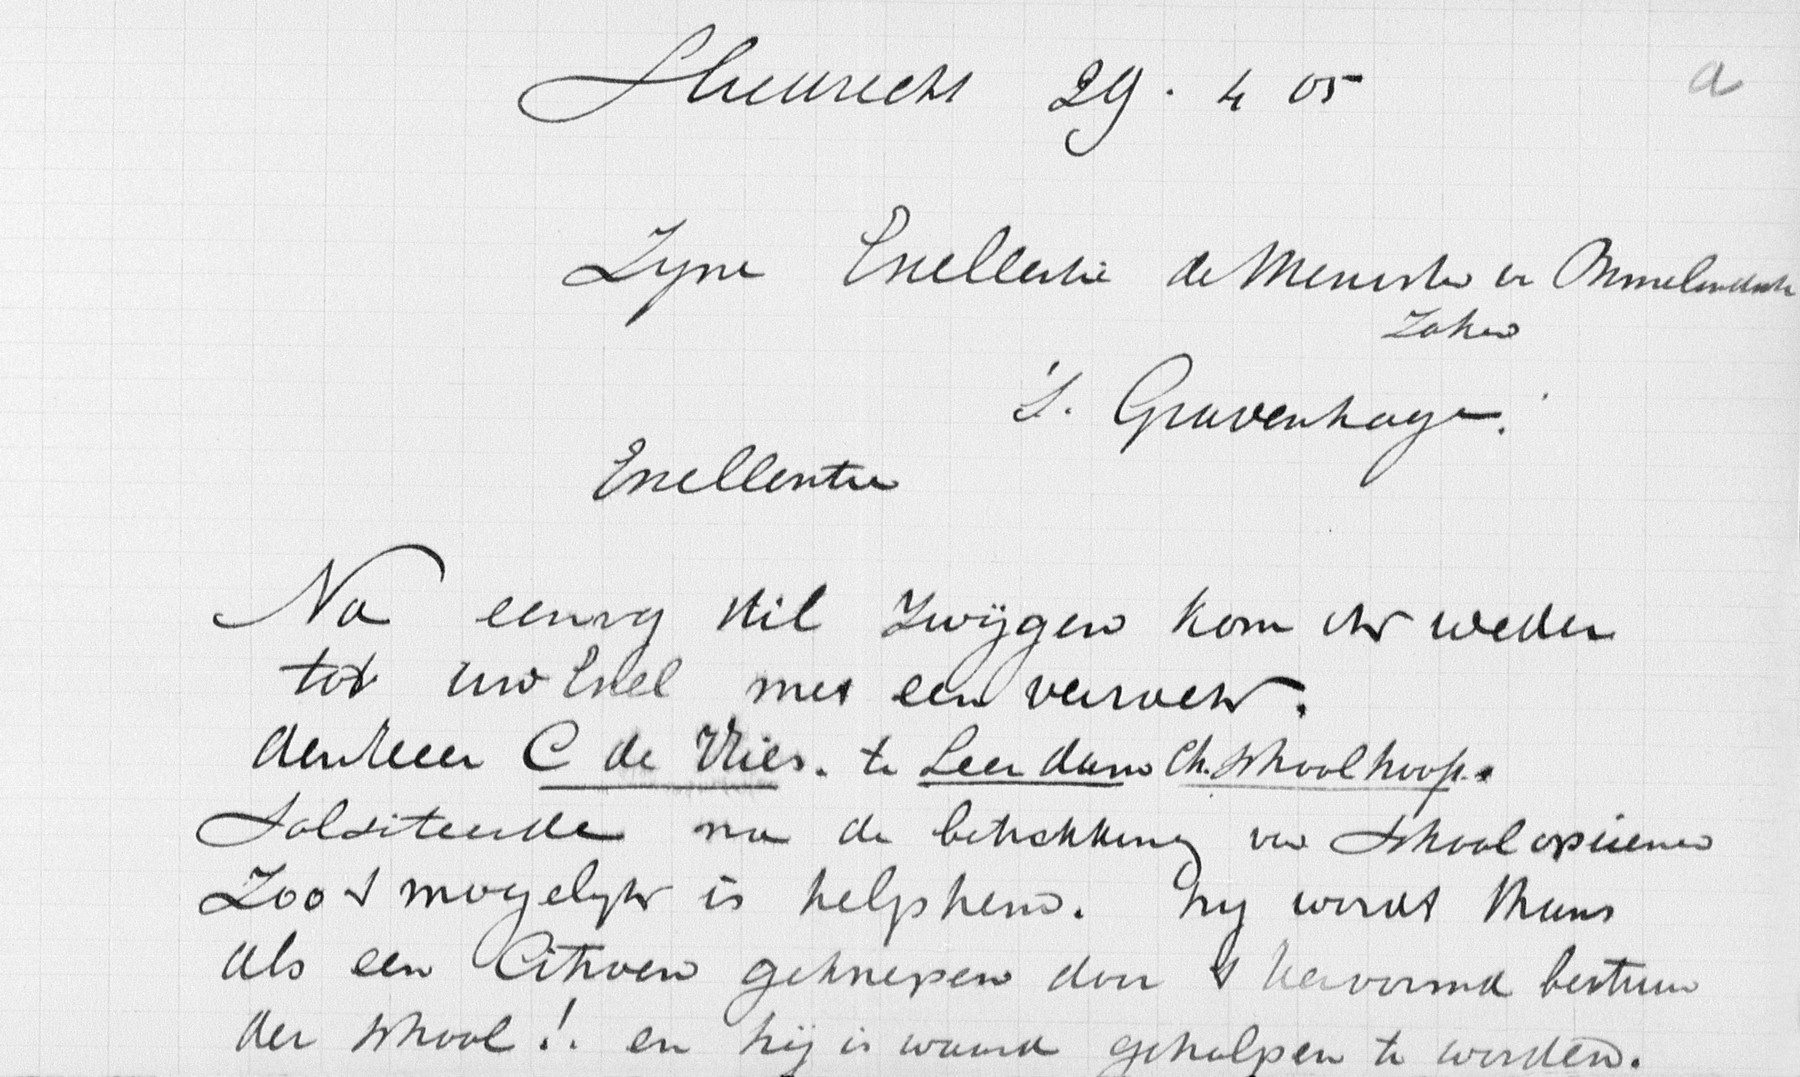 Sliedrecht 29.4 05
a
Zyne Excellentie de Minister v Binnelandsche
Zaken
's. Gravenhage.
Excellentie
Na eenig stil zwijgen kom ik weder
tot uw Excel met een verzoek.
den heer C de Vries. te Leerdam Ch. schoolhoof.
Solsiteerde na de betrekking van schoolopziener
Zoo 't mogelyk is help hem. hy wordt thans
als een Citroen geknepen door 't hervormd bestuur
der school!. en hij is waard geholpen te worden.